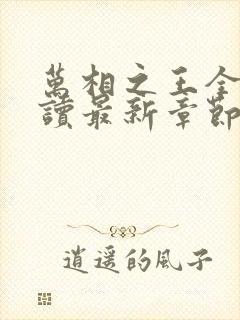 萬相之王全
讀最新章節
逍遥的風子